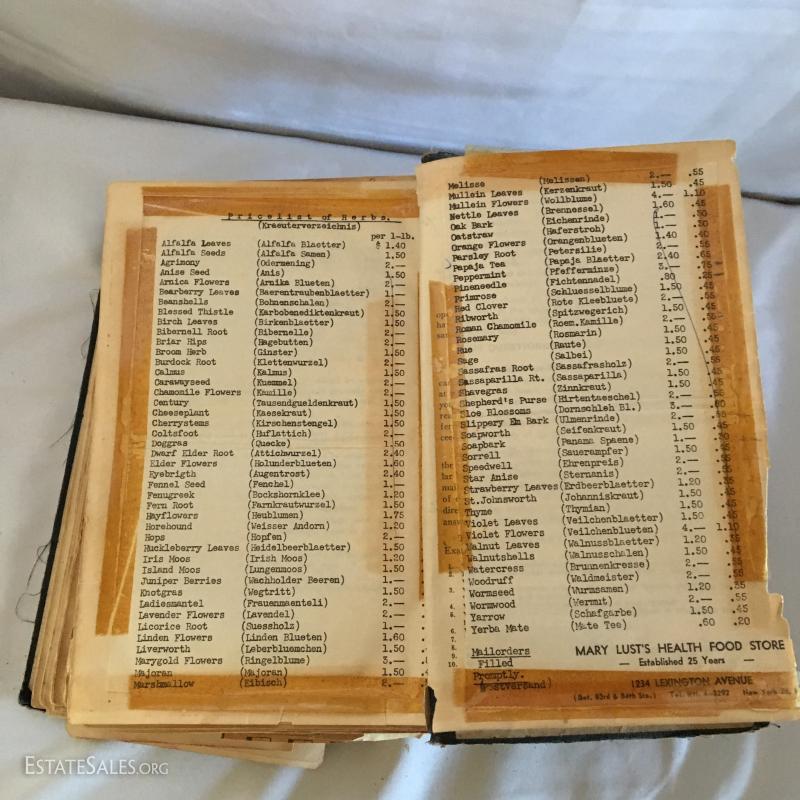 Pricelist of Herbs.
(Kraeuterverzeichnis)
per 1-lb.
Alfalfa Leaves (Alfalfa Blaetter) $ 1.40
Alfalfa Seeds (Alfalfa Samen) 1.50
Agrimony (Odermening) 2.—
Anise Seed (Anis) 1.50
Arnica Flowers (Arnika Blueten) 2.—
Bearberry Leaves (Baerentraubenblaetter) 1.—
Beanshells (Bohnenschalen) 2.—
Blessed Thistle (Karbobenediktenkraut) 1.50
Birch Leaves (Birkenblaetter) 1.50
Bibernell Root (Bibernelle) 2.—
Briar Hips (Hagebutten) 2.—
Broom Herb (Ginster) 1.50
Burdock Root (Klettenwurzel) 2.—
Calmus (Kalmus) 1.50
Carawayseed (Kuemmel) 2.—
Chamomile Flowers (Kamille) 2.—
Century (Tausendgueldenkraut) 1.50
Cheeseplant (Kaesekraut) 1.50
Cherrystems (Kirschenstengel) 1.50
Coltsfoot (Huflattich) 2.—
Doggras (Quecke) 1.50
Dwarf Elder Root (Attichwurzel) 2.40
Elder Flowers (Holunderblueten) 1.60
Eyebrigth (Augentrost) 2.40
Fennel Seed (Fenchel) 1.—
Fenugreek (Bockshornklee) 1.20
Fern Root (Farnkrautwurzel) 1.50
Hayflowers (Heublumen) 1.75
Horehound (Weisser Andorn) 1.20
Hops (Hopfen) 2.—
Huckleberry Leaves (Heidelbeerblaetter) 1.50
Iris Moos (Irish Moos) 1.20
Island Moos (Lungenmoos) 1.50
Juniper Berries (Wachholder Beeren) 1.—
Knotgras (Wegtritt) 1.50
Ladiesmantel (Frauenmaenteli) 2.—
Lavender Flowers (Lavendel) 2.—
Licorice Root (Suessholz) 1.—
Linden Flowers (Linden Blueten) 1.60
Liverworth (Leberbluemchen) 1.50
Marygold Flowers (Ringelblume) 3.—
Majoran (Majoran) 1.50
Marshmallow (Eibisch) 2.—
Melisse (Melissen) 2.— .55
Mullein Leaves (Kerzenkraut) 1.50 .45
Mullein Flowers (Wollblume) 4.— 1.10
Nettle Leaves (Brennessel) 1.60 .45
Oak Bark (Eichenrinde) 1.—
Oatstraw (Haferstroh) 1.—
Orange Flowers (Orangenblueten) 1.40 .40
Parsley Root (Petersilie) 2.— .55
Papaja Tea (Papaja Blaetter) 2.40 .65
Peppermint (Pfefferminze) 3.—
Pineneedle (Fichtennadel) .80
Primrose (Schluesselblume) 1.50
Red Clover (Rote Kleebluete) 2.—
Ribworth (Spitzwegerich) 1.50
Roman Chamomile (Roem.Kamille) 2.—
Rosemary (Rosmarin) 1.50
Rue (Raute) 1.50
Sage (Salbei) 1.50
Sassafras Root (Sassafrasholz) 2.—
Sassaparilla Rt. (Sassaparilla) 1.50
Shavegras (Zinnkraut) 1.50
Shepherd's Purse (Hirtentaeschel) 2.—
Sloe Blossoms (Dornschleh Bl.) 3.—
Slippery Elm Bark (Ulmenrinde) 2.—
Soapworth (Seifenkraut) 1.50
Soapbark (Panama Spaene) 1.—
Sorrell (Sauerampfer) 1.50
Speedwell (Ehrenpreis) 2.—
Star Anise (Sternanis) 2.—
Strawberry Leaves (Erdbeerblaetter) 1.20
St.Johnsworth (Johanniskraut) 1.50
Thyme (Thymian) 1.50
Violet Leaves (Veilchenblaetter) 1.50 .45
Violet Flowers (Veilchenblueten) 4.— 1.10
Walnut Leaves (Walnussblaetter) 1.20 .35
Walnutshells (Walnusschalen) 1.50 .45
Watercress (Brunnenkresse) 2.—
Woodruff (Waldmeister) 2.— .55
Wormseed (Wurmsamen) 1.20 .55
Wormwood (Wermut) 2.— .55
Yarrow (Schafgarbe) 1.50 .45
Yerba Mate (Mate Tee) .60 .20
Mailorders
Filled
Promptly.
(Postversand)
MARY LUST'S HEALTH FOOD STORE
— Established 25 Years —
1234 LEXINGTON AVENUE
(Bet. 83rd & 84th Sts.) Tel. New York 28,
ESTATESALES.ORG